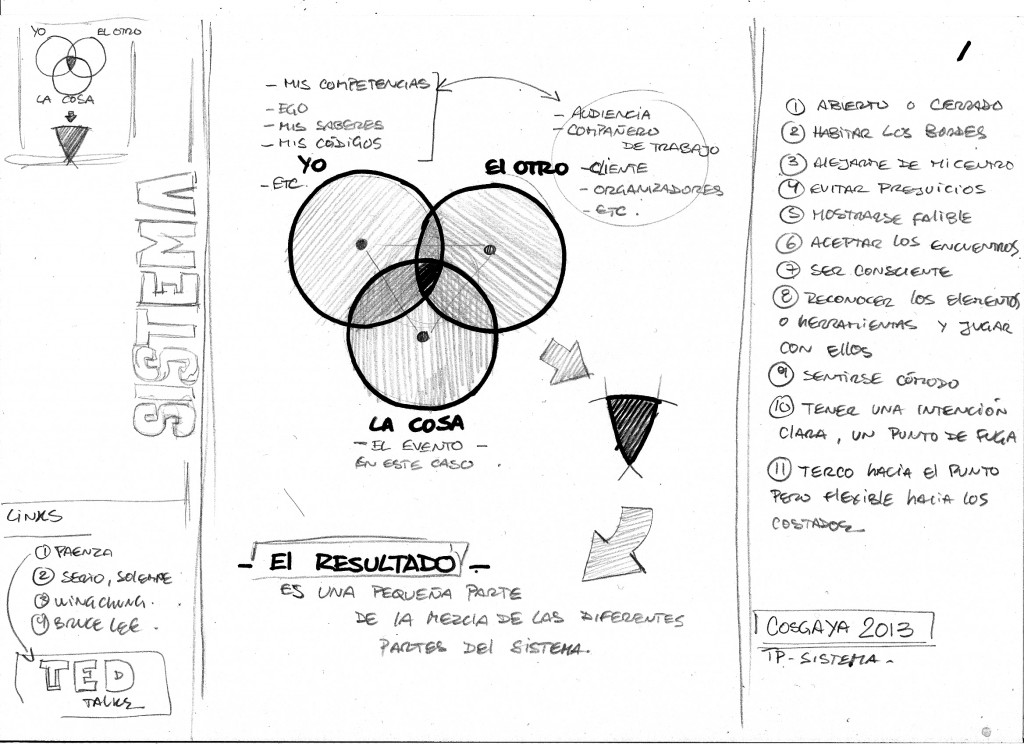 YO
EL OTRO
LA COSA
SISTEMA
LINKS
① PAENZA
② SERIO, SOLEMNE
③ WING CHUNG.
④ BRUCE LEE.
TED
TALKS
- MIS COMPETENCIAS
- EGO
- MIS SABERES
- MIS CÓDIGOS
YO
- ETC.
- AUDIENCIA
- COMPAÑERO
DE TRABAJO
El OTRO
- CLIENTE
- ORGANIZADORES
- ETC.
LA COSA
- EL EVENTO -
EN ESTE CASO.
- El RESULTADO -
ES UNA PEQUEÑA PARTE
DE LA MEZCLA DE LAS DIFERENTES
PARTES DEL SISTEMA.
1
① ABIERTO O CERRADO
② HABITAR LOS BORDES
③ ALEJARME DE MI CENTRO
④ EVITAR PREJUICIOS
⑤ MOSTRARSE FALIBLE
⑥ ACEPTAR LOS ENCUENTROS
⑦ SER CONSCIENTE
⑧ RECONOCER LOS ELEMENTOS
O HERRAMIENTAS Y JUGAR
CON ELLOS
⑨ SENTIRSE CÓMODO
⑩ TENER UNA INTENCIÓN
CLARA, UN PUNTO DE FUGA
⑪ TERCO HACIA EL PUNTO
PERO FLEXIBLE HACIA LOS
COSTADOS
COSGAYA 2013
TP - SISTEMA -